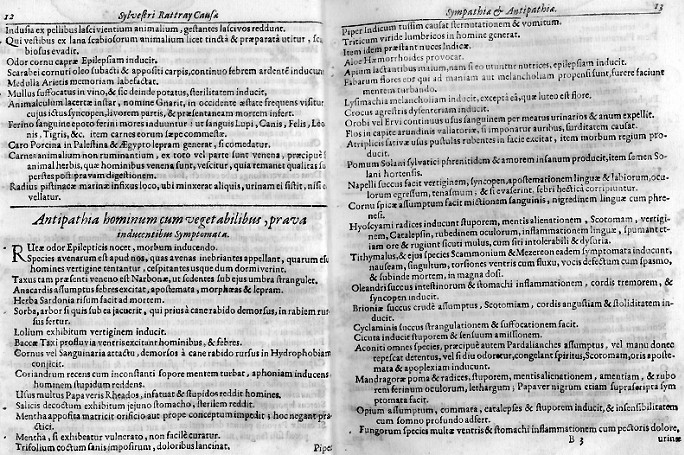 12 Sylvestri Rattray Causæ
Indusia ex pellibus lascivientium animalium, gestantes lascivos reddunt.
Qui vestibus ex lana scabiosorum animalium licet tincta & præparata utitur, sca
biosus evadit.
Odor cornu capræ Epilepsiam inducit.
Scarabei cornuti oleo subacti & appositi carpis, continuo febrem ardentẽ inducunt
Medulla Arietis memoriam labefactat.
Mullus suffocatus in vino, & sic deinde potatus, sterilitatem inducit.
Animalculum lacertæ instar, nomine Gnarit, in occidente æstate frequens visitur
cujus ictus syncopen, livorem partis, & præsentaneam mortem infert.
Ferino sanguine epoto ferini mores induuntur: ut sanguis Lupi, Canis, Felis, Leo
nis, Tigris, &c. item carnes eorum sæpe comestæ.
Caro Porcina in Palestina & Ægypto lepram generat, si comedatur.
Carnes animalium non ruminantium, ex toto vel parte sunt venena, præcipuè si
animal herbis, quæ hominibus venena sunt, vescitur, quia remanet qualitas su
perstes post pravam digestionem.
Radius pistinacæ marinæ infixus loco, ubi minxerat aliquis, urinam ei sistit, nisi e
vellatur.
Antipathia hominum cum vegetabilibus, prava
inducentibus Symptomata.
RUtæ odor Epilepticis nocet, morbum inducendo.
Species avenarum est apud nos, quas avenas inebriantes appellant, quarum esu
homines vertigine tentantur, cespitantes usque dum dormiverint.
Taxus tam præsenti veneno est Narbonæ, ut sedentes sub ejus umbra stranguler.
Anacardis assumptus febres excitat, apostemata, morphæas & lepram.
Herba Sardonia risum facit ad mortem.
Sorba, arbor si quis sub ea jacuerit, qui prius à cane rabido demorsus, in rabiem rur
sus fertur.
Lolium exhibitum vertiginem inducit.
Baccæ Taxi profluvia ventris excitunt hominibus, & febres.
Cornus vel Sanguinaria attactu, demorsos à cane rabido rursus in Hydrophobiam
conjicit.
Coriandrum recens cum inconstanti sopore mentem turbat, aphoniam inducens
hominem stupidum reddens.
Usus multus Papaveris Rheados, infatuat & stupidos reddit homines.
Salicis decoctum exhibitum jejuno stomacho, sterilem reddit.
Mentha apposita matricis orificio aut prope conceptum impedit; hoc negant pra
ctici.
Mentha, si exhibeatur vulnerato, non facilè curatur.
Trifolium coctum sanis impositum, doloribus lancinat.
Piper
Sympathiæ & Antipathiæ. 13
Piper Indicum tussim causat sternutationem & vomitum.
Triticum viride lumbricos in homine generat.
Item idem præstant nuces Indicæ.
Aloe Hæmorrhoides provocat.
Apium lactantibus malum, nam si eo utuntur nutrices, epilepsiam inducit.
Fabarum flores eos qui ad maniam aut melancholiam propensi sunt, furere faciunt
mentem turbando.
Lysimachia melancholiam inducit, excepta eâ, quæ luteo est flore.
Crocus agrestis dysenteriam inducit.
Orobi vel Ervi continuus usus sanguinem per meatus urinarios & anum expellit.
Flos in capite arundinis vallatoriæ, si imponatur auribus, surditatem causat.
Atriplicis sativæ usus pustulas rubentes in facie excitat, item morbum regium pro-
ducit.
Pomum Solani sylvatici phrenitidem & amorem insanum producit, item semen So-
lani hortensis.
Napelli succus facit vertiginem, syncopen, apostemationem linguæ & labiorum, ocu-
lorum egressum, tenasmum; & si evaserint, febri hectica corripiuntur.
Cornu spicæ assumptum facit mictionem sanguinis, nigredinem linguæ cum phre-
nesi.
Hyoscyami radices inducunt stuporem, mentis alienationem, Scotomam, vertigi-
nem, Catalepsin, rubedinem oculorum, inflammationem linguæ, spumant et-
iam ore & rugiunt sicuti mulus, cum siti intolerabili & dysuria.
Tithymalus, & ejus species Scammonium & Mezereon eadem symptomata inducunt,
nauseam, singultum, torsiones ventris cum fluxu, vocis defectum cum spasmo,
& subinde mortem, in magna dosi.
Oleandri succus intestinorum & stomachi inflammationem, cordis tremorem, &
syncopen inducit.
Brioniæ succus crudè assumptus, Scotomiam, cordis angustiam & stoliditatem in-
ducit.
Cyclaminis succus strangulationem & suffocationem facit.
Cicuta inducit stuporem & sensuum amissionem.
Aconiti omnes species, præcipuè autem Pardalianches assumptus, vel manu donec
tepescat detentus, vel si diu odoratur, congelant spiritus, Scotomam, oris aposte-
mata & apoplexiam inducunt.
Mandragoræ poma & radices, stuporem, mentis alienationem, amentiam, & rubo
rem ferinum oculorum, lethargum; Papaver nigrum etiam suprascripta sym
ptomata facit.
Opium assumptum, commata, catalepses & stuporem inducit, & insensibilitatem
cum somno profundo adfert.
Fungorum species multæ ventris & stomachi inflammationem cum pectoris dolore,
B 3 urinæ